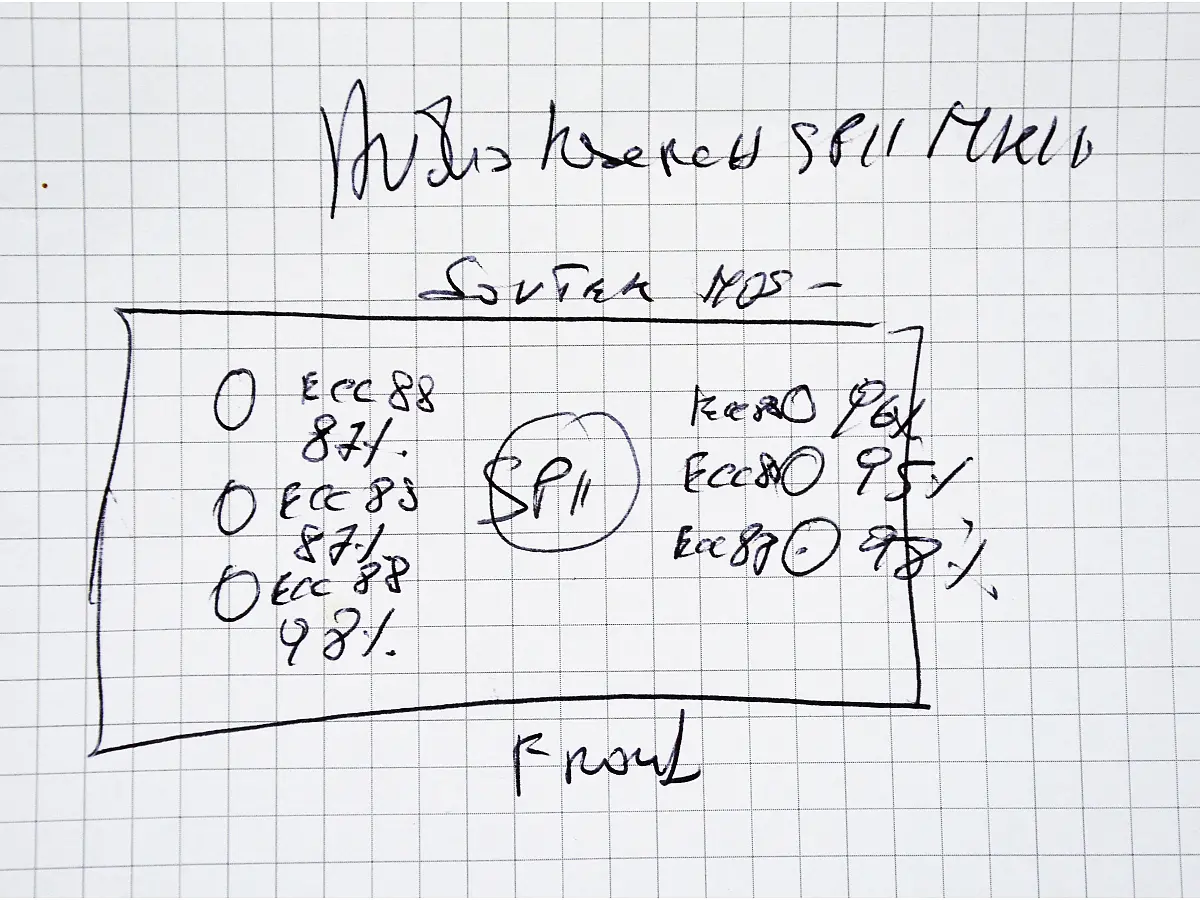 Audio Research SPII MKII
SOVTEK MOS -
ECC 88
87%.
ECC 88
87%
ECC 88
98%.
SPII
Ecc88 96%
Ecc88 95%
Ecc88 98%
Front